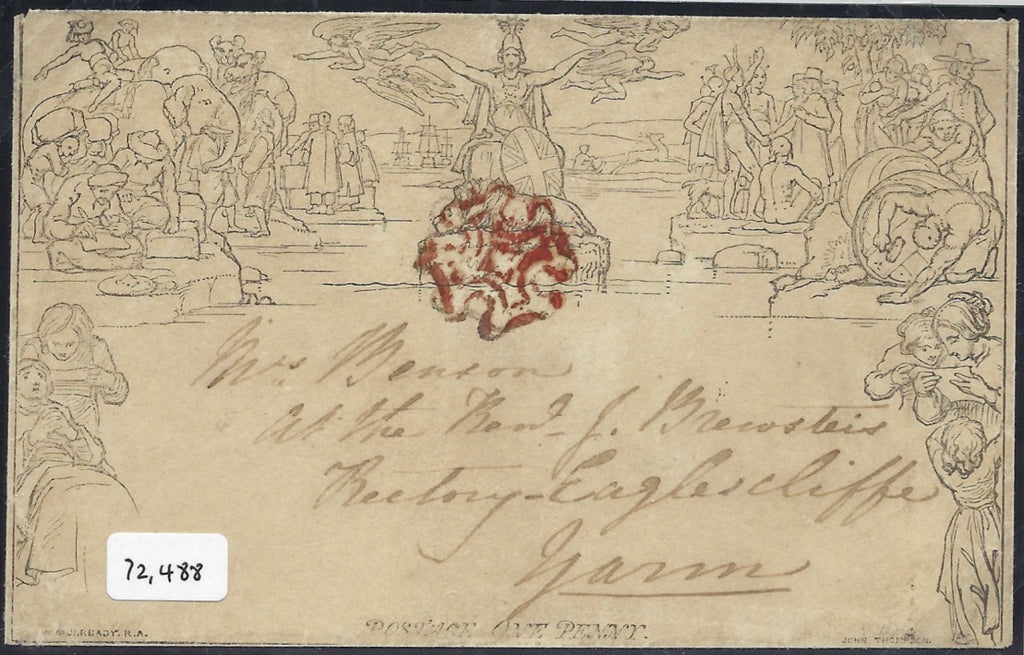 Mrs Benson
at the Revd. J. Brewsters
Rectory - Eaglescliffe
Yarm
72,488
MULREADY. R.A.
POSTAGE ONE PENNY.
JOHN THOMPSON.